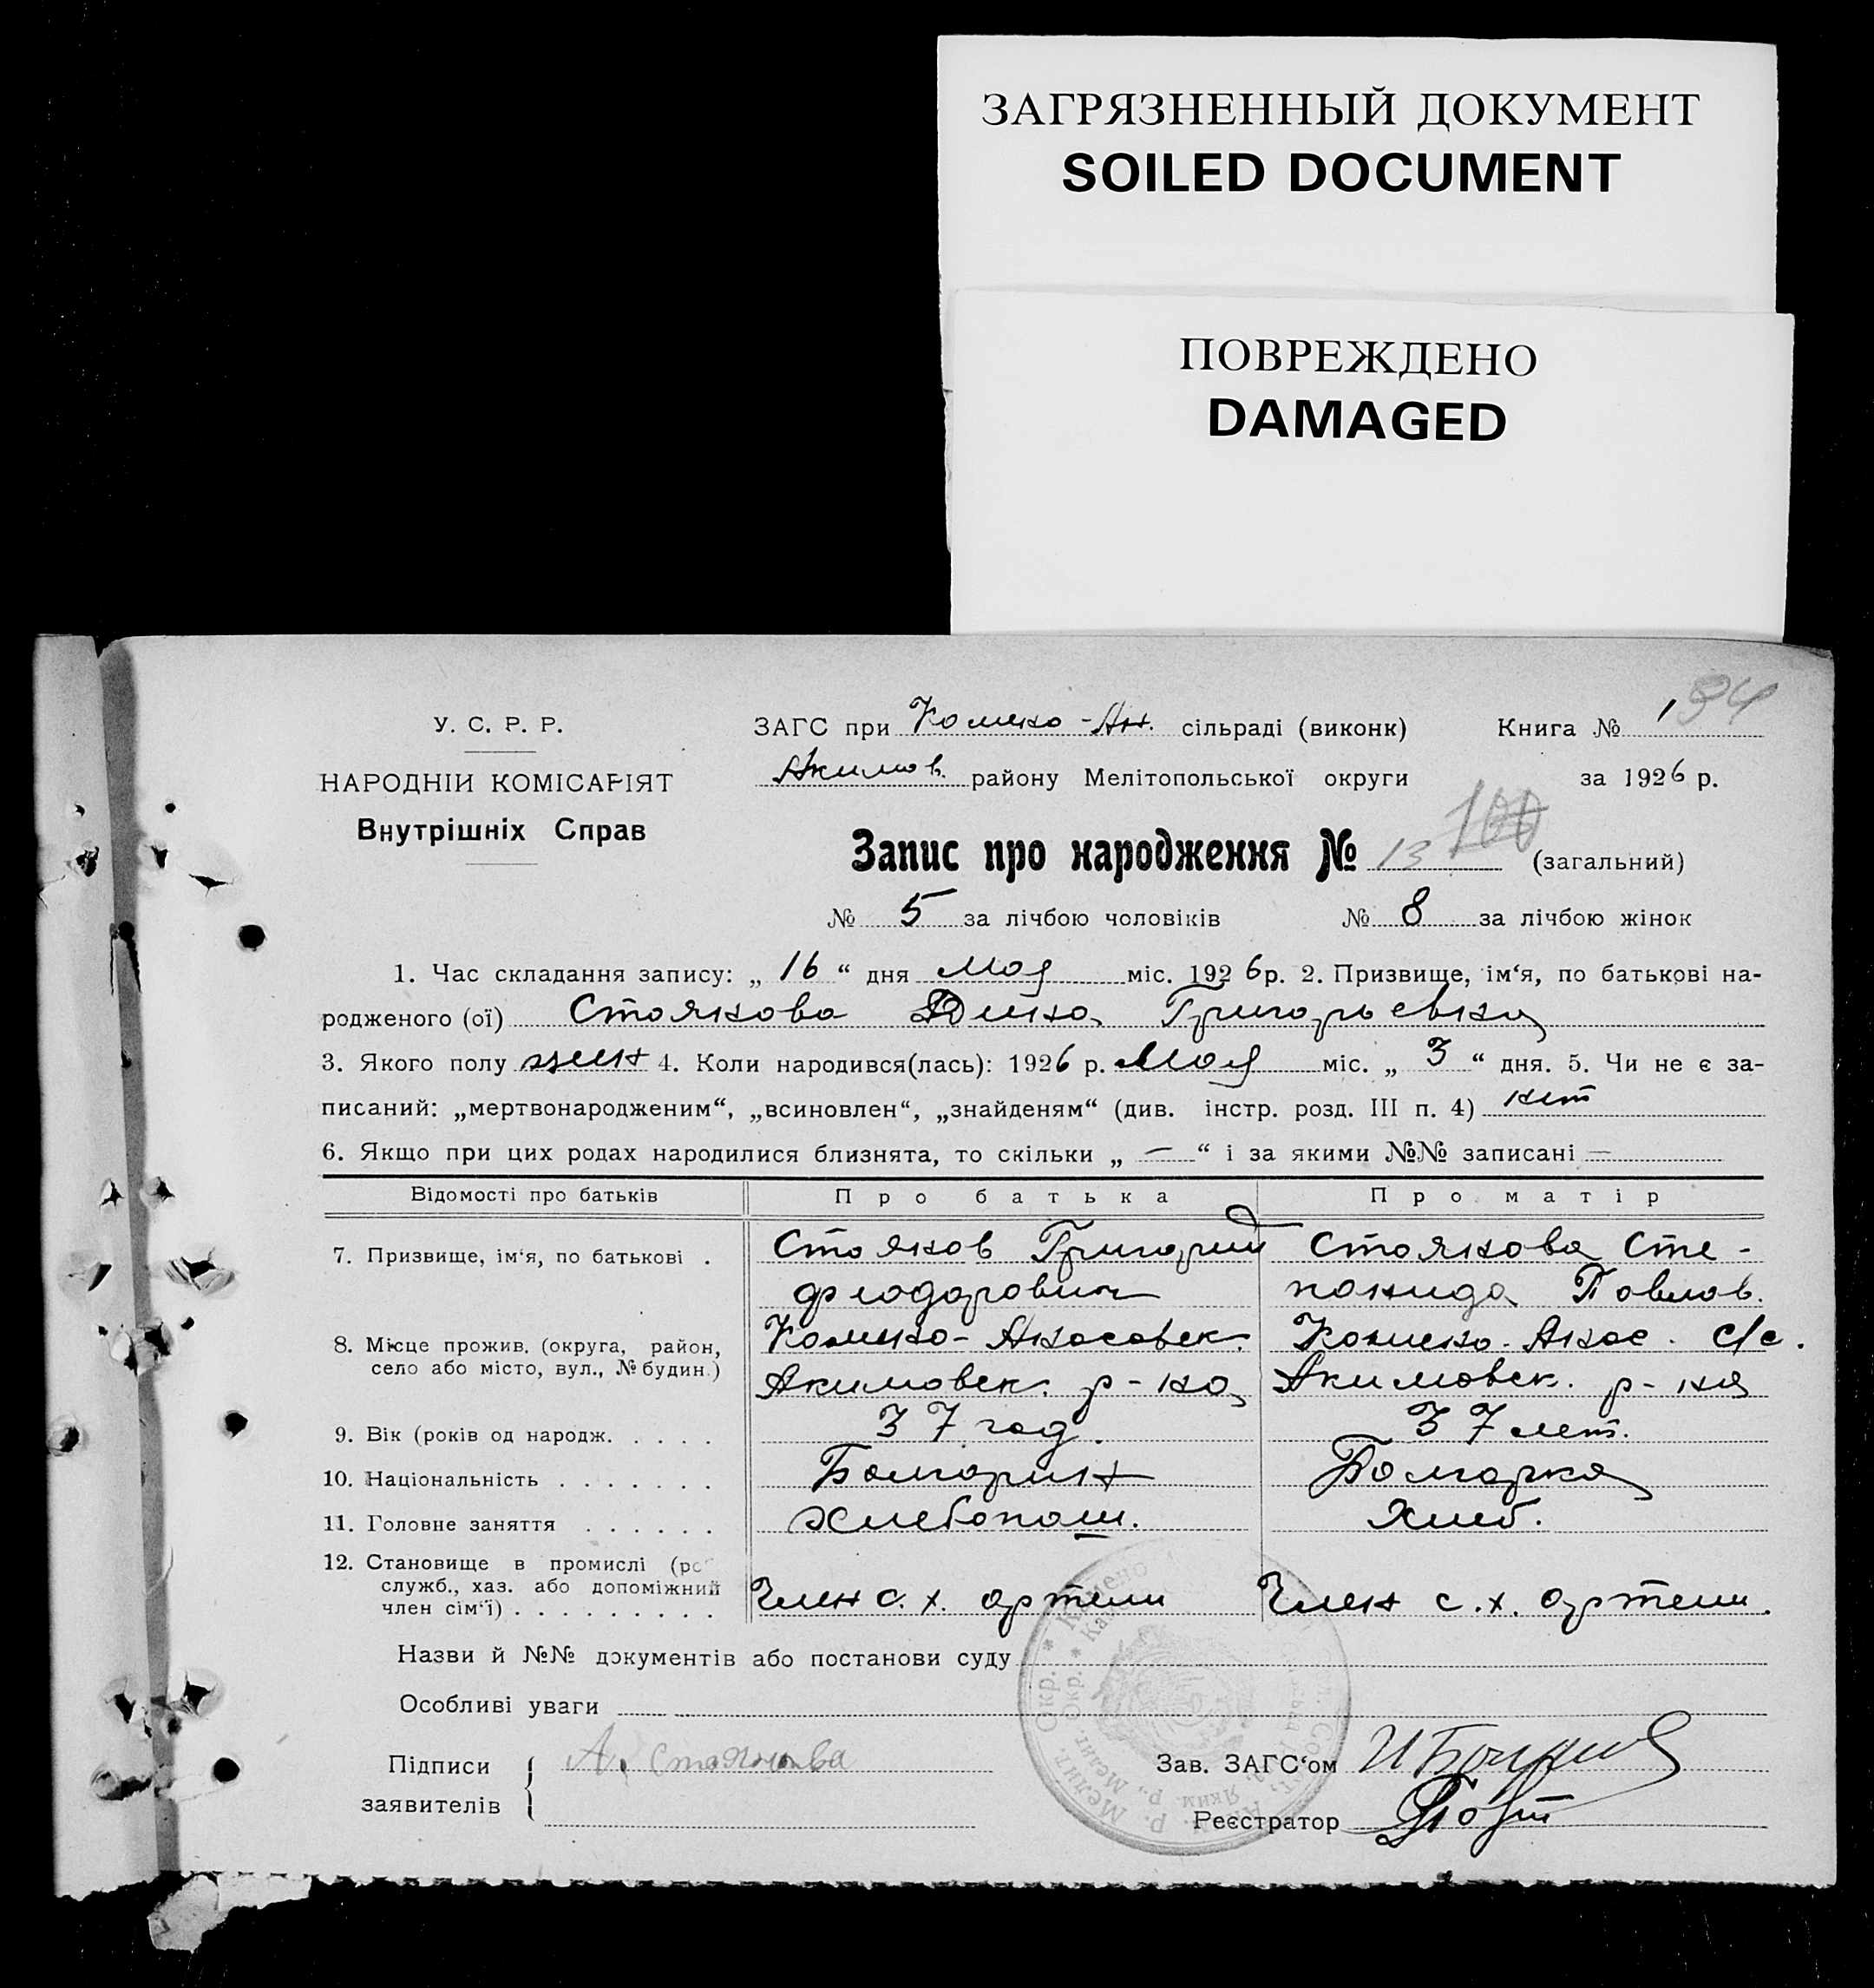 ЗАГРЯЗНЕННЫЙ ДОКУМЕНТ
SOILED DOCUMENT
ПОВРЕЖДЕНО
DAMAGED
У. С. Р. Р.
НАРОДНІЙ КОМІСАРІЯТ
Внутрішніх Справ
ЗАГС при Камено-Ан. сільраді (виконк) Книга № 1
Акимов. району Мелітопольської округи за 1926 р.
Запис про народження № 13 100 (загальний)
№ 5 за лічбою чоловіків № 8 за лічбою жінок
1. Час складання запису: „ 16 “ дня Мая міс. 1926 р. 2. Призвище, ім‘я, по батькові на-
родженого (ої) Стоянова Григорьевна
3. Якого полу жен 4. Коли народився(лась): 1926 р. Мая міс. „ 3 “ дня. 5. Чи не є за-
писаний: „мертвонародженим“, „всиновлен“, „знайденям“ (див. інстр. розд. III п. 4) нет
6. Якщо при цих родах народилися близнята, то скільки „ — “ і за якими №№ записані —
Відомості про батьків Про батька Про матір
7. Призвище, ім‘я, по батькові . Стоянов Григорий Стоянова Сте-
Феодорович понида Павлов.
8. Місце прожив. (округа, район, село або місто, вул., № будин.) Камено-Анасовск. Камено-Анас. с/с.
Акимовск. р-на Акимовск. р-на
9. Вік (років од народж. . . . . 37 год. 37 лет.
10. Національність . . . . . . . Болгарин Болгарка
11. Головне заняття . . . . . . Хлебопаш. Хлеб.
12. Становище в промислі (ро
служб., хаз. або допоміжний
член сім‘ї) . . . . . . . . . Член с. х. артели Член с. х. артели.
Назви й №№ документів або постанови суду
Особливі уваги
Підписи заявителів А. Стоянова
Зав. ЗАГС‘ом
Реєстратор